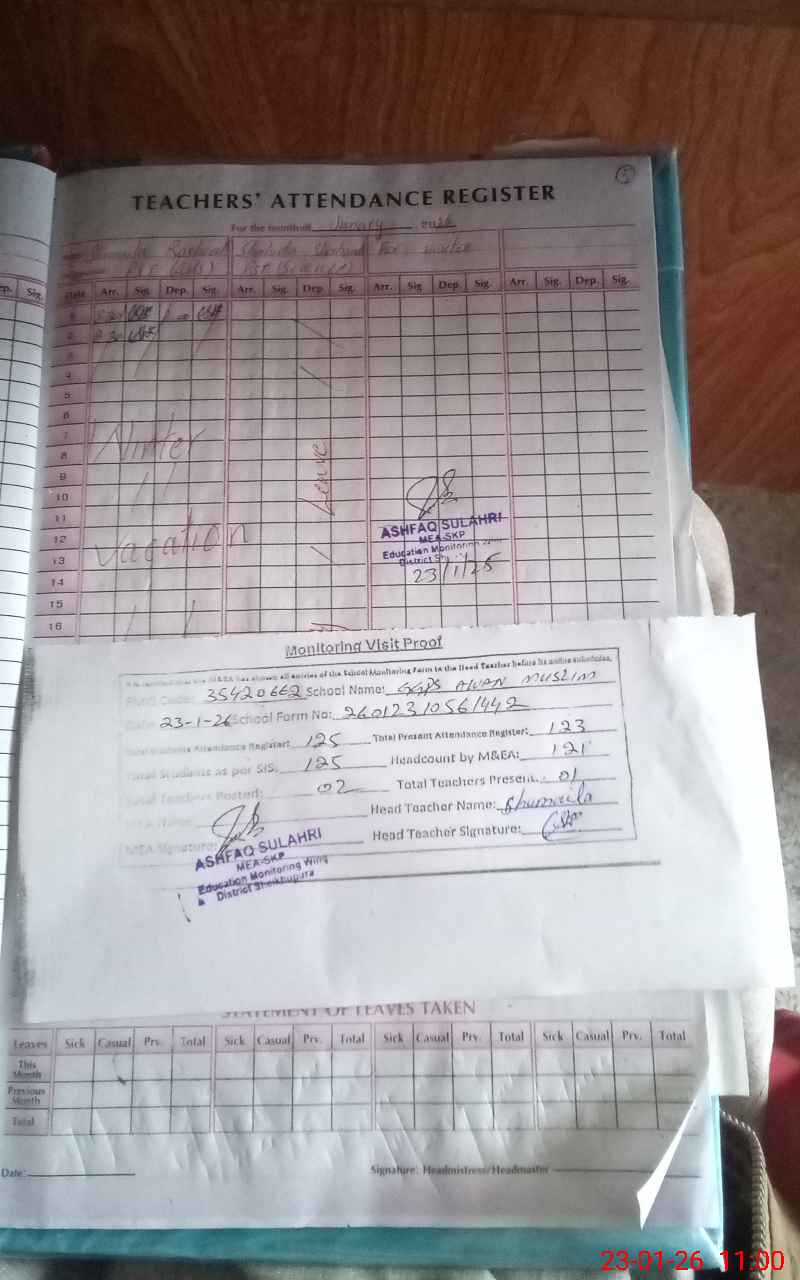 TEACHERS' ATTENDANCE REGISTER
5
For the month of January 2026
Shahida Shaheen For winter
PST (Science)
ep. Sig. Date Arr. Sig. Dep. Sig. Arr. Sig. Dep. Sig. Arr. Sig. Dep. Sig. Arr. Sig. Dep. Sig.
1 8 30
2 8 30
3
4
5
6
7 Winter
8
9 Leave
10
11
12 Vacation
13
14
15
16
ASHFAQ SULAHRI
MEA-SKP
Education Monitoring Wing
District
23/1/25
Monitoring Visit Proof
all entries of the School Monitoring Form to the Head Teacher before its online submission.
EMIS Code: 35420662 School Name: GGPS AWAN MUSLIM
Date: 23-1-26 School Form No: 26012310561442
Total Students Attendance Register: 125 Total Present Attendance Register: 123
Total Students as per SIS: 125 Headcount by M&EA: 121
Total Teachers Posted: 02 Total Teachers Present: 01
MEA Name: Head Teacher Name: Shumaila
MEA Signature: Head Teacher Signature:
ASHFAQ SULAHRI
MEA-SKP
Education Monitoring Wing
District Sheikhupura
STATEMENT OF LEAVES TAKEN
Leaves Sick Casual Prv. Total Sick Casual Prv. Total Sick Casual Prv. Total Sick Casual Prv. Total
This Month
Previous Month
Total
Date: Signature: Headmistress/Headmaster
23-01-26 11:00